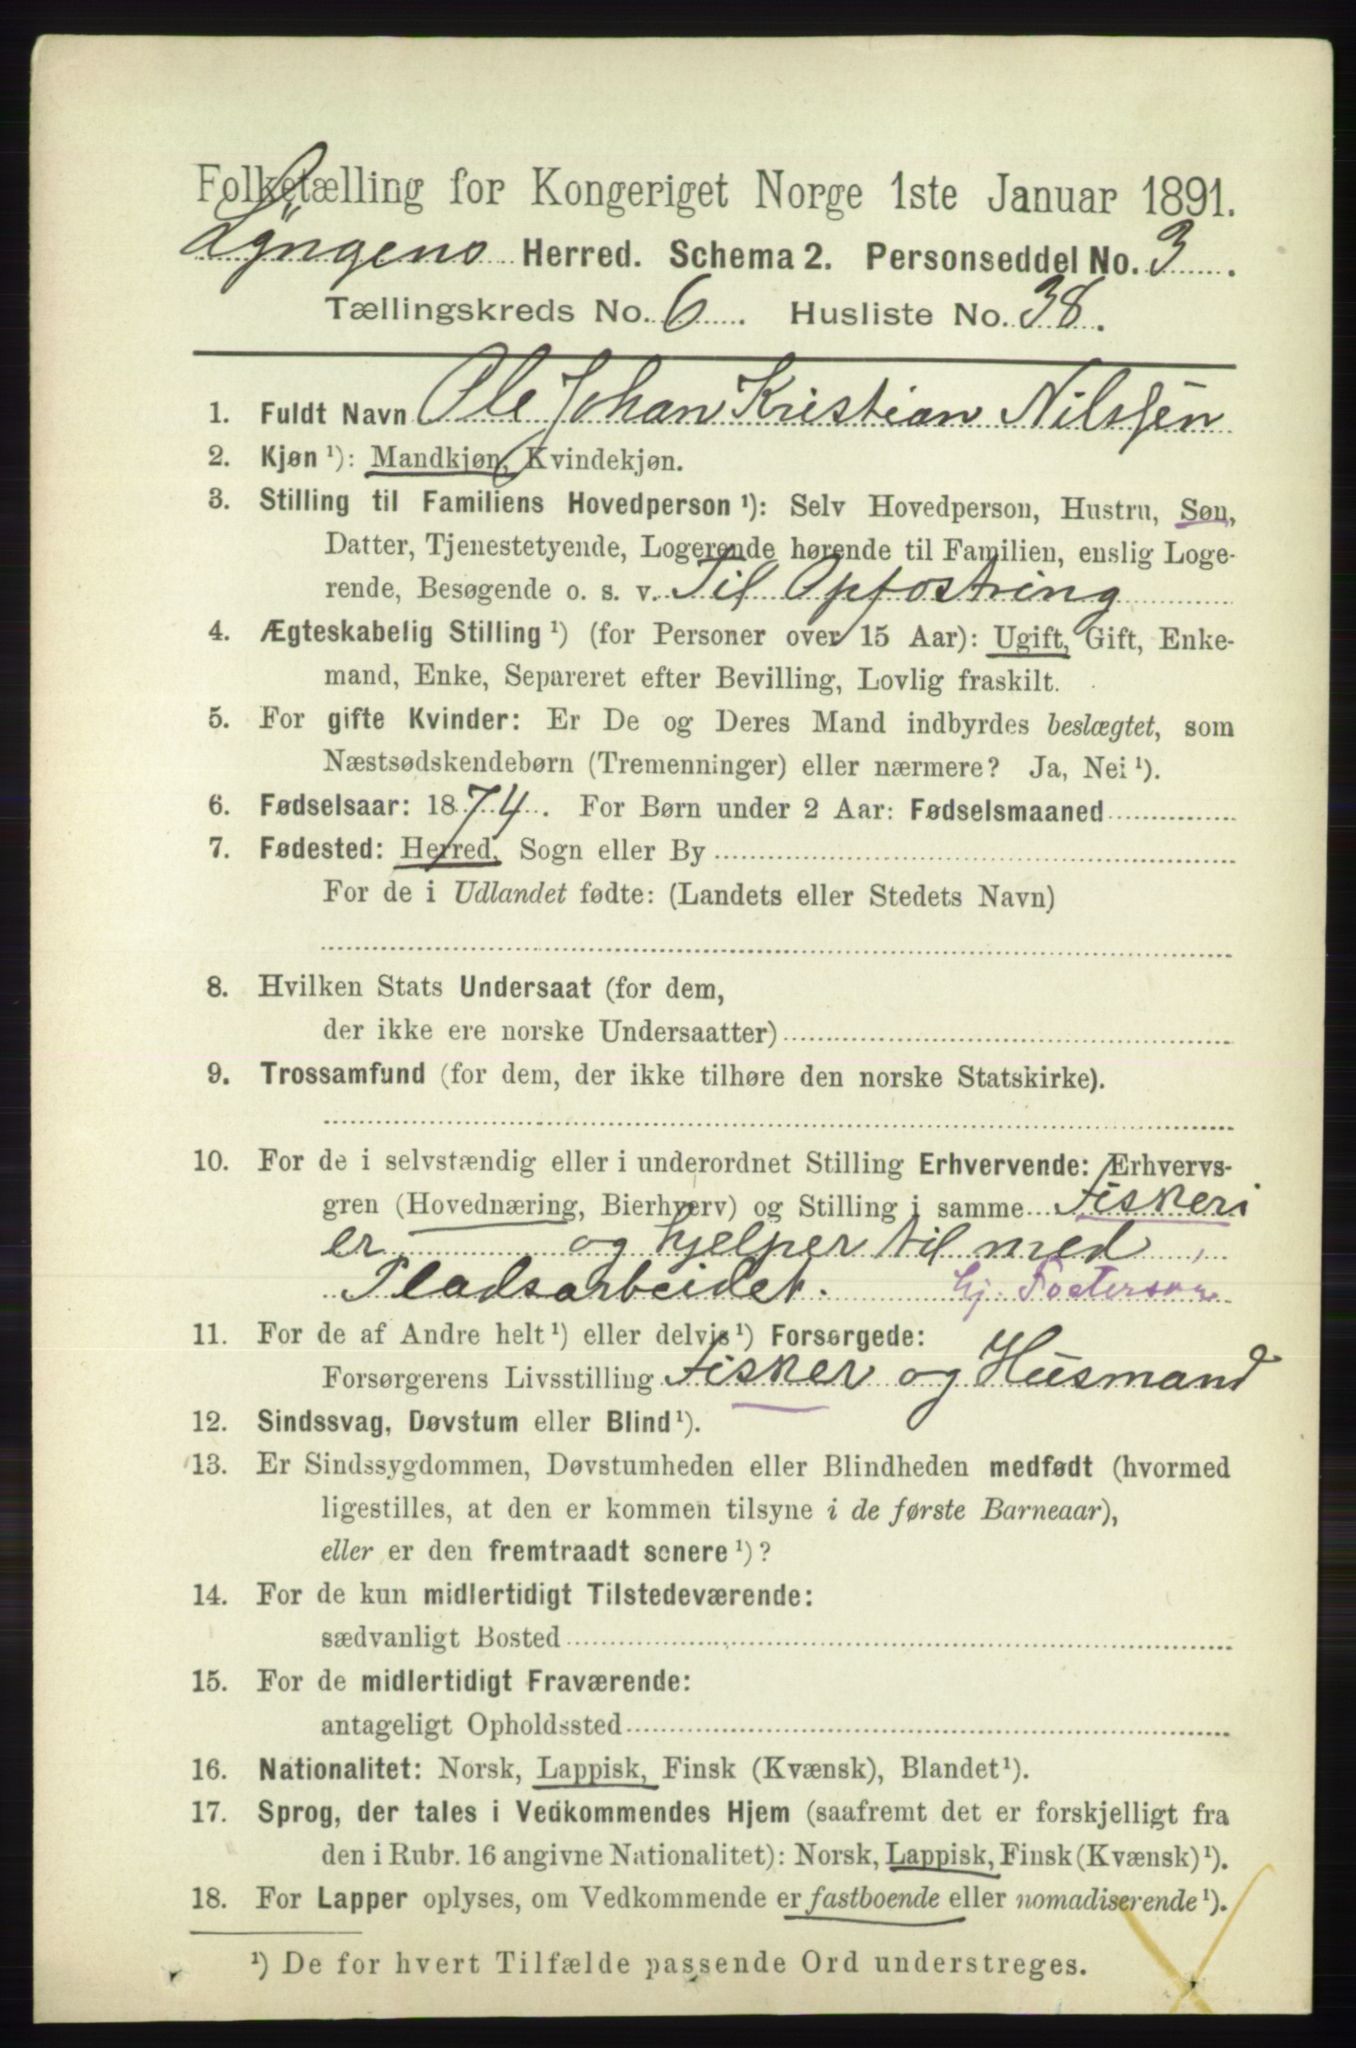 Folketælling for Kongeriget Norge 1ste Januar 1891.
Lyngens Herred. Schema 2. Personseddel No. 3.
Tællingskreds No. 6. Husliste No. 38.
1. Fuldt Navn Ole Johan Kristian Nilsen
2. Kjøn ¹): Mandkjøn, Kvindekjøn.
3. Stilling til Familiens Hovedperson ¹): Selv Hovedperson, Hustru, Søn,
Datter, Tjenestetyende, Logerende hørende til Familien, enslig Loge-
rende, Besøgende o. s. v. Til Opfostring
4. Ægteskabelig Stilling ¹) (for Personer over 15 Aar): Ugift, Gift, Enke-
mand, Enke, Separeret efter Bevilling, Lovlig fraskilt.
5. For gifte Kvinder: Er De og Deres Mand indbyrdes beslægtet, som
Næstsødskendebørn (Tremenninger) eller nærmere? Ja, Nei ¹).
6. Fødselsaar: 1874. For Børn under 2 Aar: Fødselsmaaned
7. Fødested: Herred, Sogn eller By
For de i Udlandet fødte: (Landets eller Stedets Navn)
8. Hvilken Stats Undersaat (for dem,
der ikke ere norske Undersaatter)
9. Trossamfund (for dem, der ikke tilhøre den norske Statskirke).
10. For de i selvstændig eller i underordnet Stilling Erhvervende: Ærhvervs-
gren (Hovednæring, Bierhverv) og Stilling i samme Fiskeri
er og hjelper til med
Pladsarbeidet. hj. Fosterson
11. For de af Andre helt ¹) eller delvis ¹) Forsørgede:
Forsørgerens Livsstilling Fisker og Husmand
12. Sindssvag, Døvstum eller Blind ¹).
13. Er Sindssygdommen, Døvstumheden eller Blindheden medfødt (hvormed
ligestilles, at den er kommen tilsyne i de første Barneaar),
eller er den fremtraadt senere ¹)?
14. For de kun midlertidigt Tilstedeværende:
sædvanligt Bosted
15. For de midlertidigt Fraværende:
antageligt Opholdssted
16. Nationalitet: Norsk, Lappisk, Finsk (Kvænsk), Blandet ¹).
17. Sprog, der tales i Vedkommendes Hjem (saafremt det er forskjelligt fra
den i Rubr. 16 angivne Nationalitet): Norsk, Lappisk, Finsk (Kvænsk) ¹).
18. For Lapper oplyses, om Vedkommende er fastboende eller nomadiserende ¹).
¹) De for hvert Tilfælde passende Ord understreges.